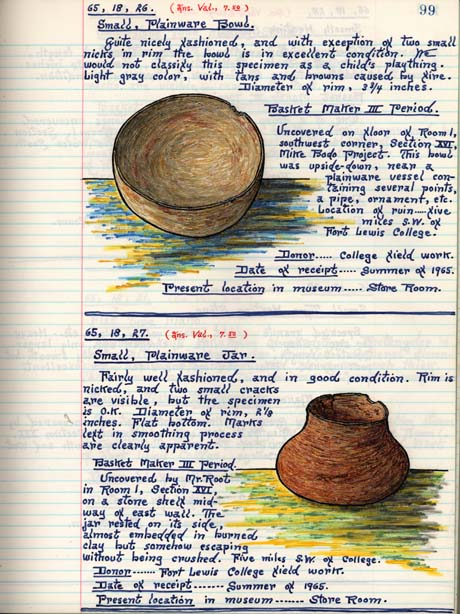 99
65, 18, 26. (Ins. Val., 7.50)
Small, Plainware Bowl.
Quite nicely fashioned, and with exception of two small
nicks in rim the bowl is in excellent condition. We
would not classify this specimen as a child's plaything.
Light gray color, with tans and browns caused by fire.
Diameter of rim, 3 3/4 inches.
Basket Maker III Period.
Uncovered on floor of Room 1,
southwest corner, Section XVI,
Mike Bodo Project. This bowl
was upside-down, near a
plainware vessel con-
taining several points,
a pipe, ornament, etc.
Location of ruin---five
miles S.W. of
Fort Lewis College.
Donor..... College field work.
Date of receipt..... Summer of 1965.
Present location in museum ..... Store Room.
65, 18, 27. (Ins. Val., 7.50)
Small, Plainware Jar.
Fairly well fashioned, and in good condition. Rim is
nicked, and two small cracks
are visible, but the specimen
is O.K. Diameter of rim, 2 1/8
inches. Flat bottom. Marks
left in smoothing process
are clearly apparent.
Basket Maker III Period.
Uncovered by Mr. Root
in Room 1, Section XVI,
on a stone shelf mid-
way of east wall. The
jar rested on its side,
almost embedded in burned
clay but somehow escaping
without being crushed. Five miles S.W. of College.
Donor...... Fort Lewis College field work.
Date of receipt....... Summer of 1965.
Present location in museum ....... Store Room.